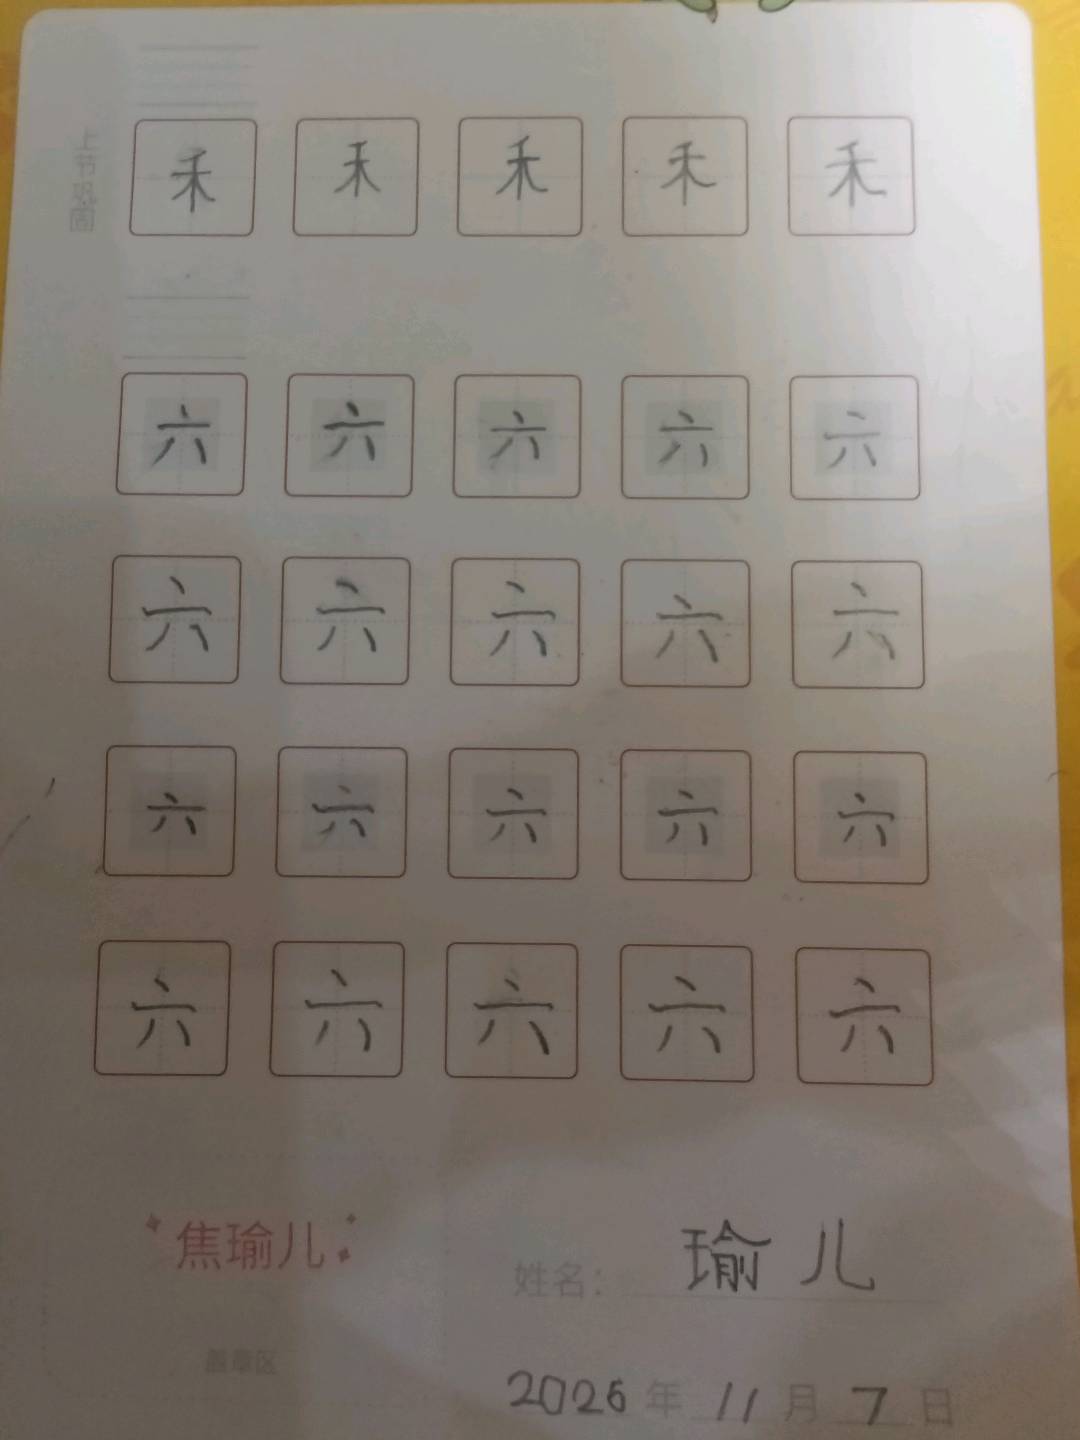 上节巩固
禾 禾 禾 禾 禾
六 六 六 六 六
六 六 六 六 六
六 六 六 六 六
六 六 六 六 六
焦瑜儿
姓名： 瑜儿
盖章区
2026年 11月 7日